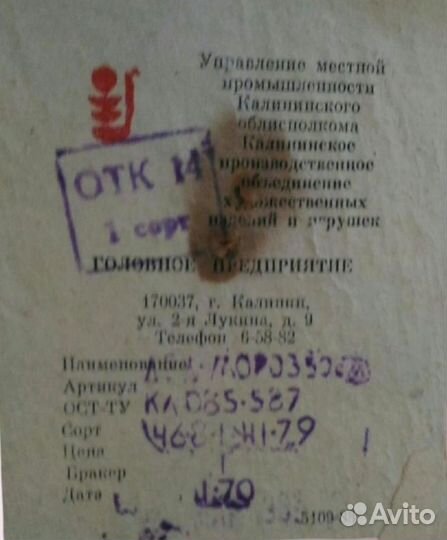 Управление местной
промышленности
Калининского
облисполкома
Калининское
производственное
объединение
художественных
изделий и игрушек
ОТК 14
1 сорт
ГОЛОВНОЕ ПРЕДПРИЯТИЕ
170037, г. Калинин,
ул. 2-я Лукина, д. 9
Телефон 6-58-82
Наименование
Артикул
ОСТ-ТУ КЛ 085-587
Сорт
Цена
Бракер 1
Дата 1-70
5109
Avito